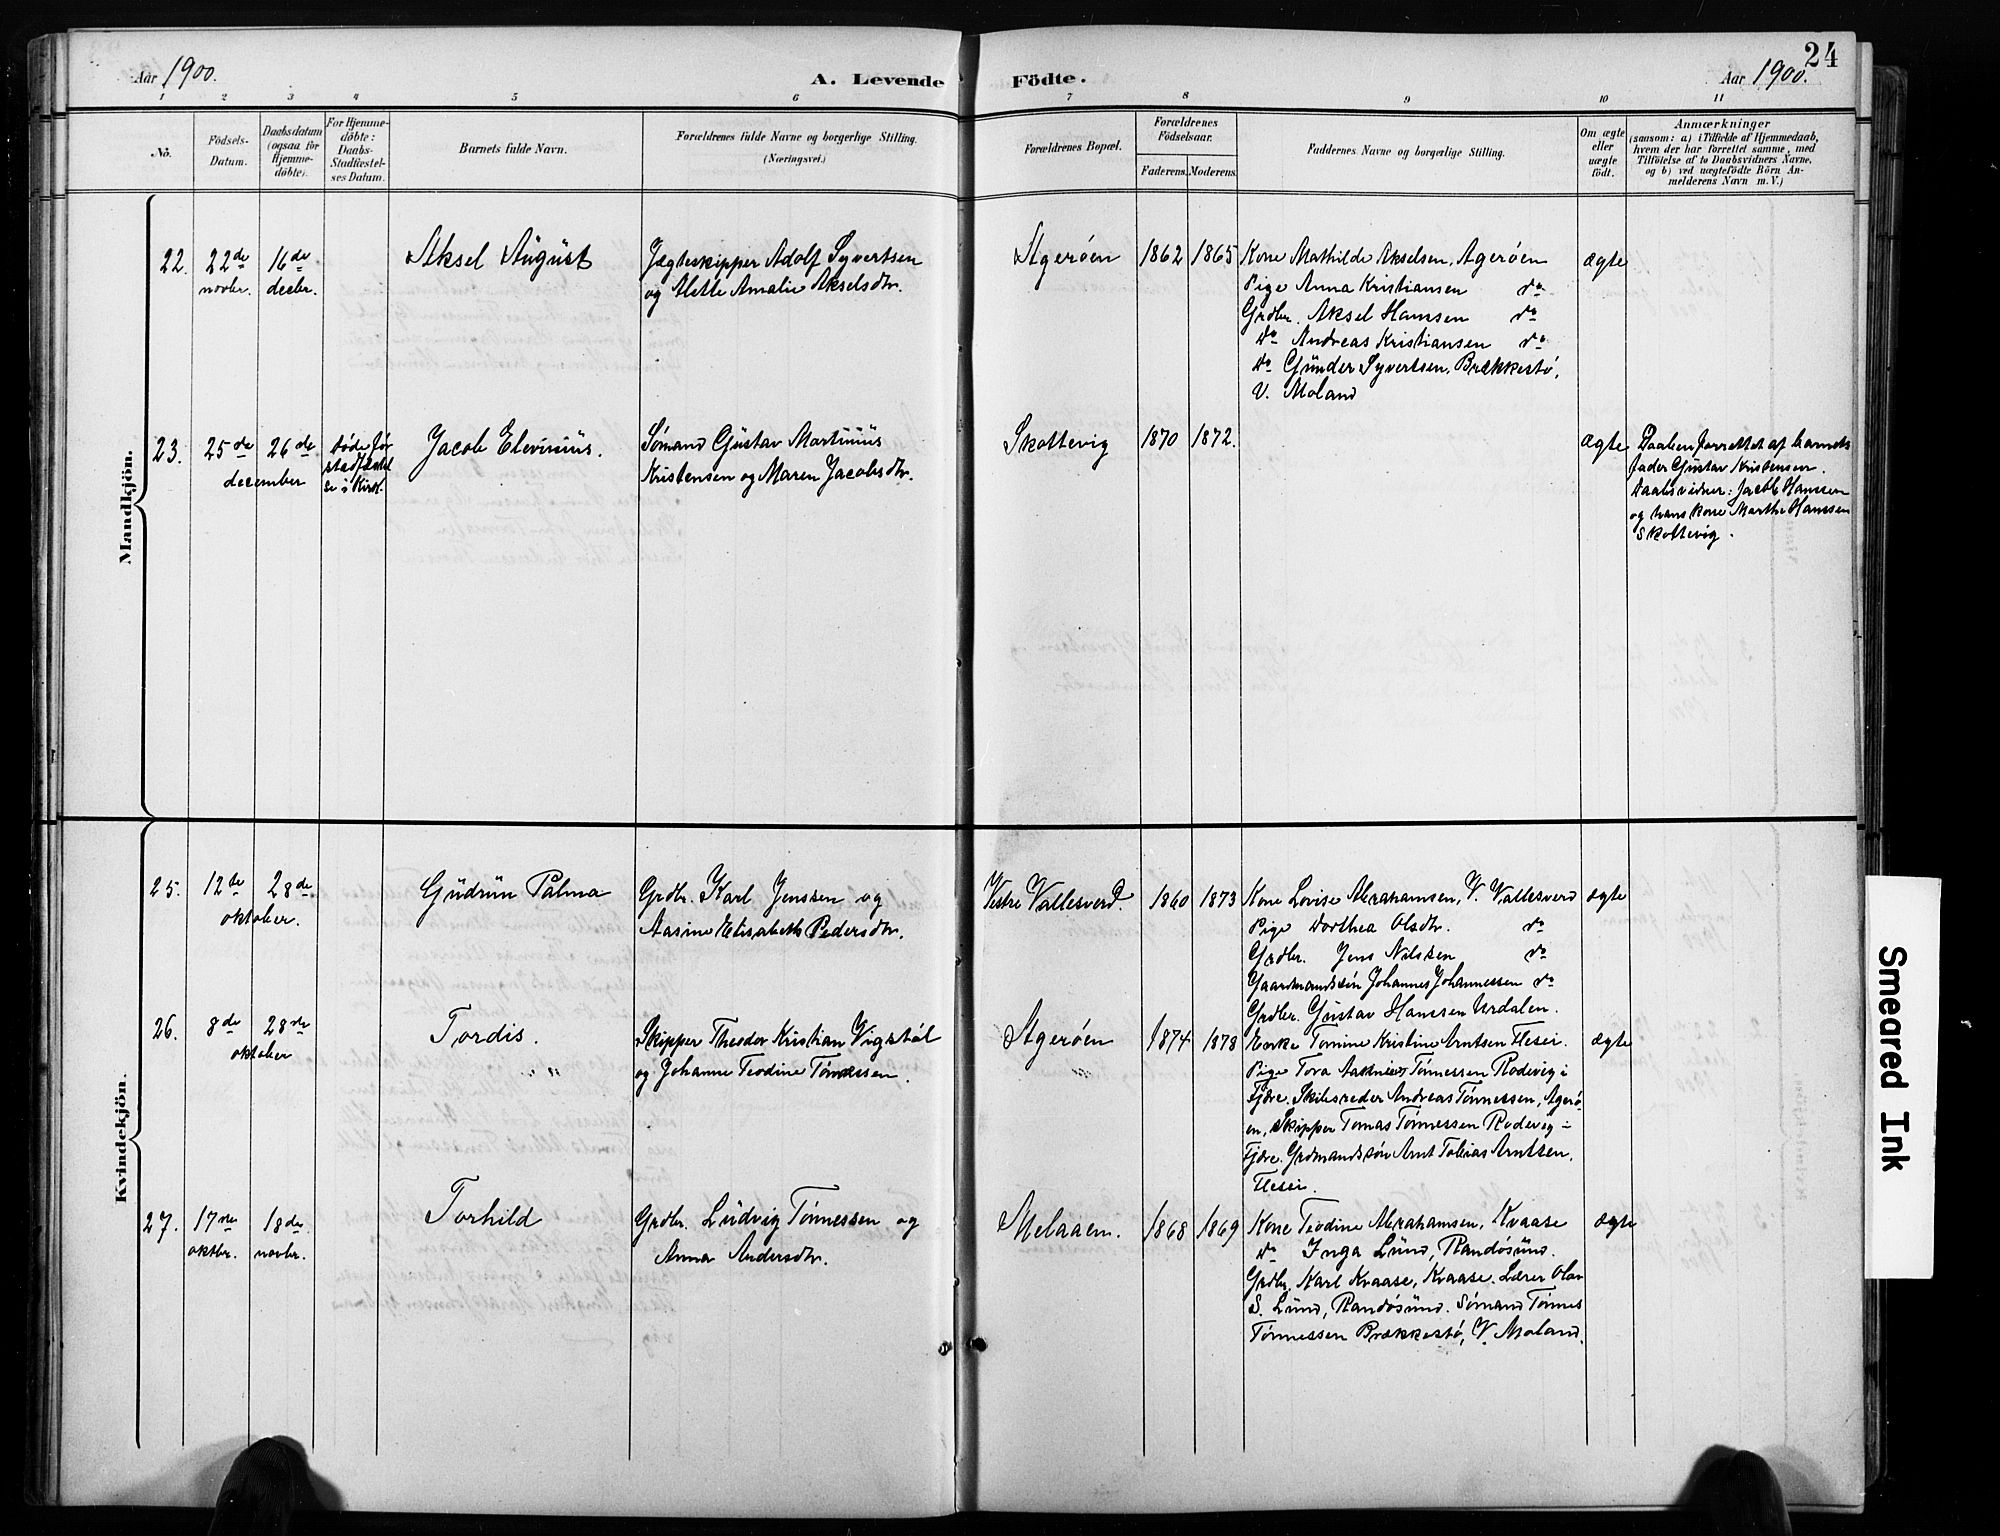 24
Aar 1900.
A. Levende Födte.
Aar 1900.
1 2 3 4 5 6 7 8 9 10 11
No.
Födsels-Datum.
Daabsdatum (ogsaa for Hjemmedöbte).
For Hjemmedöbte: Daabs-Stadfæstelses Datum.
Barnets fulde Navn.
Forældrenes fulde Navne og borgerlige Stilling.
(Næringsvei.)
Forældrenes Bopæl.
Forældrenes Födselsaar.
Faderens. Moderens.
Faddernes Navne og borgerlige Stilling.
Om ægte eller uægte födt.
Anmærkninger
(saasom: a) i Tilfælde af Hjemmedaab,
hvem der har forrettet samme, med
Tilföielse af to Daabsvidners Navne,
og b) ved uægtefödte Börn Anmelderens Navn m.V.)
Mandkjön.
22. 22de novbr. 16de decbr.
Aksel August
Jægteskipper Adolf Syvertsen
og Alette Amalie Akselsdtr.
Agerøen 1862 1865
Kone Mathilde Akselsen, Agerøen
Pige Anna Kristiansen do
Grdbr. Aksel Hanssen do
do Andreas Kristiansen do
do Gunder Syvertsen, Brækkestø,
V. Moland
ægte
23. 25de 26de december
døde før stadfæstelse i Kirk.
Jacob Elevinius.
Sømand Gustav Martinius
Kristensen og Maren Jacobsdtr.
Skottevig 1870 1872.
ægte
Daaben forrettet af barnets
fader Gustav Kristensen.
Daabsvidner: Jacob Hanssen
og hans kone Marthe Hanssen
Skottevig.
Kvindekjön.
25. 12te 28de oktober.
Gudrun Palma
Grdbr. Karl Jenssen og
Aasine Elisabeth Pedersdtr.
Vestre Vallesverd. 1860 1873
Kone Lovise Abrahamsen, V. Vallesverd
Pige Dorthea Olsdtr. do
Grdbr. Jens Nilssen do
Gaardmandssøn Johannes Johannessen do
Grdbr. Gustav Hanssen Urdalen.
ægte
26. 8de 28de oktober
Tordis.
Skipper Theodor Kristian Vigstøl
og Johanne Teodine Tønnessen.
Agerøen 1874 1878
Enke Tomine Kristine Arntsen Flesei.
Pige Tora Tønnessen Rodevig i
Fjære. Skibsreder Andreas Tønnessen, Agerø-
en, Skipper Tomas Tønnessen Rodevig i
Fjære. Grdmandssøn Arnt Tobias Arntsen,
Flesei.
ægte
27. 17de oktbr. 18de novbr.
Torhild
Grdbr. Ludvig Tønnessen og
Anna Andersdtr.
Melaaen. 1868 1869
Kone Teodine Abrahamsen, Kvaase
do Inga Lund, Randøsund.
Grdbr. Karl Kvaase, Kvaase. Lærer Olav
S. Lund, Randøsund. Sømand Tønnes
Tønnessen Brækkestø, V. Moland.
ægte
Smeared Ink